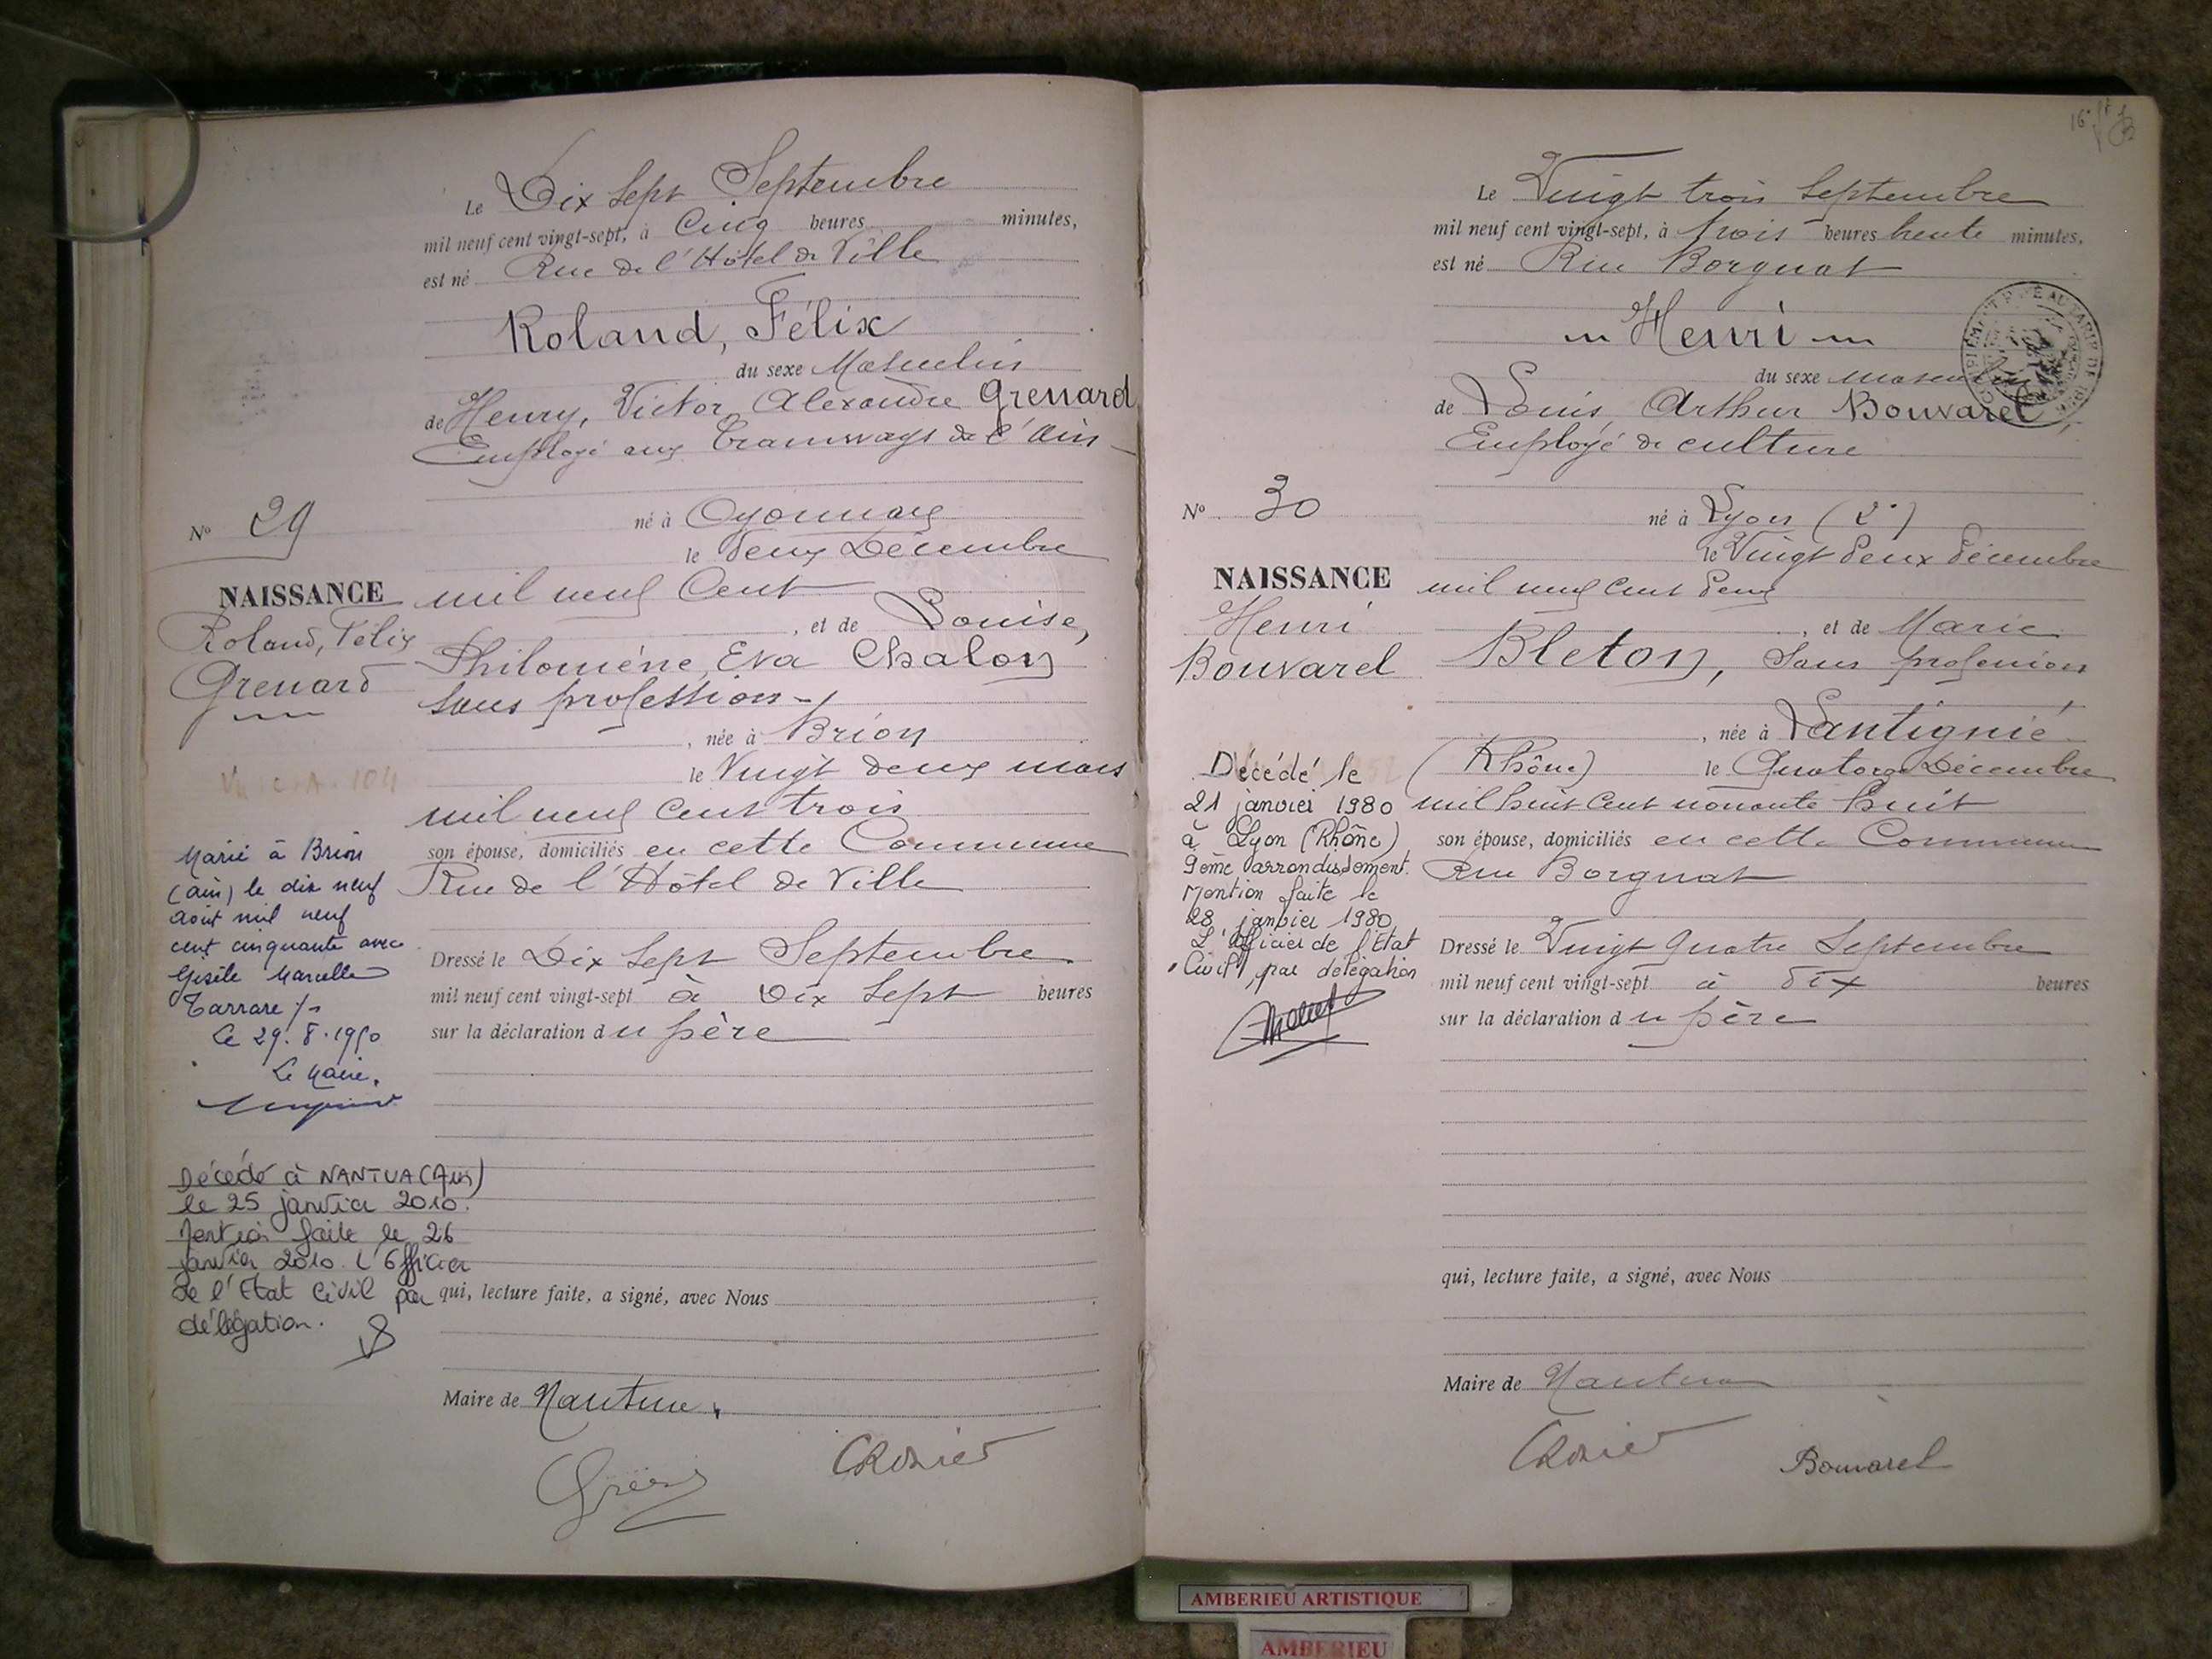 Le Dix Sept Septembre
mil neuf cent vingt-sept, à Cinq heures minutes,
est né Rue de l'Hôtel de Ville
Roland, Félix
du sexe Masculin
de Henry, Victor, Alexandre Grenard
Employé aux Tramways de l'Ain
né à Oyonnax
le deux Décembre
mil neuf Cent
, et de Louise,
Philomène, Eva Chalon
sans profession
, née à Brion
le Vingt deux mars
mil neuf cent trois
son épouse, domiciliés en cette Commune
Rue de l'Hôtel de Ville
Dressé le Dix Sept Septembre
mil neuf cent vingt-sept à Dix Sept heures
sur la déclaration du père
qui, lecture faite, a signé, avec Nous
Maire de Nantua.
Nº 29
NAISSANCE
Roland, Félix
Grenard
Marié à Brion
(Ain) le dix neuf
août mil neuf
cent cinquante avec
Gisèle Marcelle
Tarrare /-
Le 29.8.1950
Le Maire,
Décédé à NANTUA (Ain)
le 25 janvier 2010.
Mention faite le 26
janvier 2010. L'Officier
de l'Etat Civil par
délégation.
16
Le Vingt trois Septembre
mil neuf cent vingt-sept, à trois heures trente minutes,
est né Rue Borgnat
Henri
du sexe masculin
de Louis Arthur Bouvarel,
Employé de culture
né à Lyon (2e)
le Vingt deux décembre
mil neuf cent deux
, et de Marie
Bleton, Sans profession
, née à Lantignié
(Rhône) le Quatorze Décembre
mil huit cent nonante huit
son épouse, domiciliés en cette Commune
Rue Borgnat
Dressé le Vingt quatre Septembre
mil neuf cent vingt-sept à dix heures
sur la déclaration du père
qui, lecture faite, a signé, avec Nous
Maire de Nantua
Bouvarel
Nº 30
NAISSANCE
Henri
Bouvarel
Décédé le
21 janvier 1980
à Lyon (Rhône)
9ème arrondissement.
Mention faite le
28 janvier 1980
L'officier de l'Etat
Civil, par délégation
AMBERIEU ARTISTIQUE
AMBERIEU